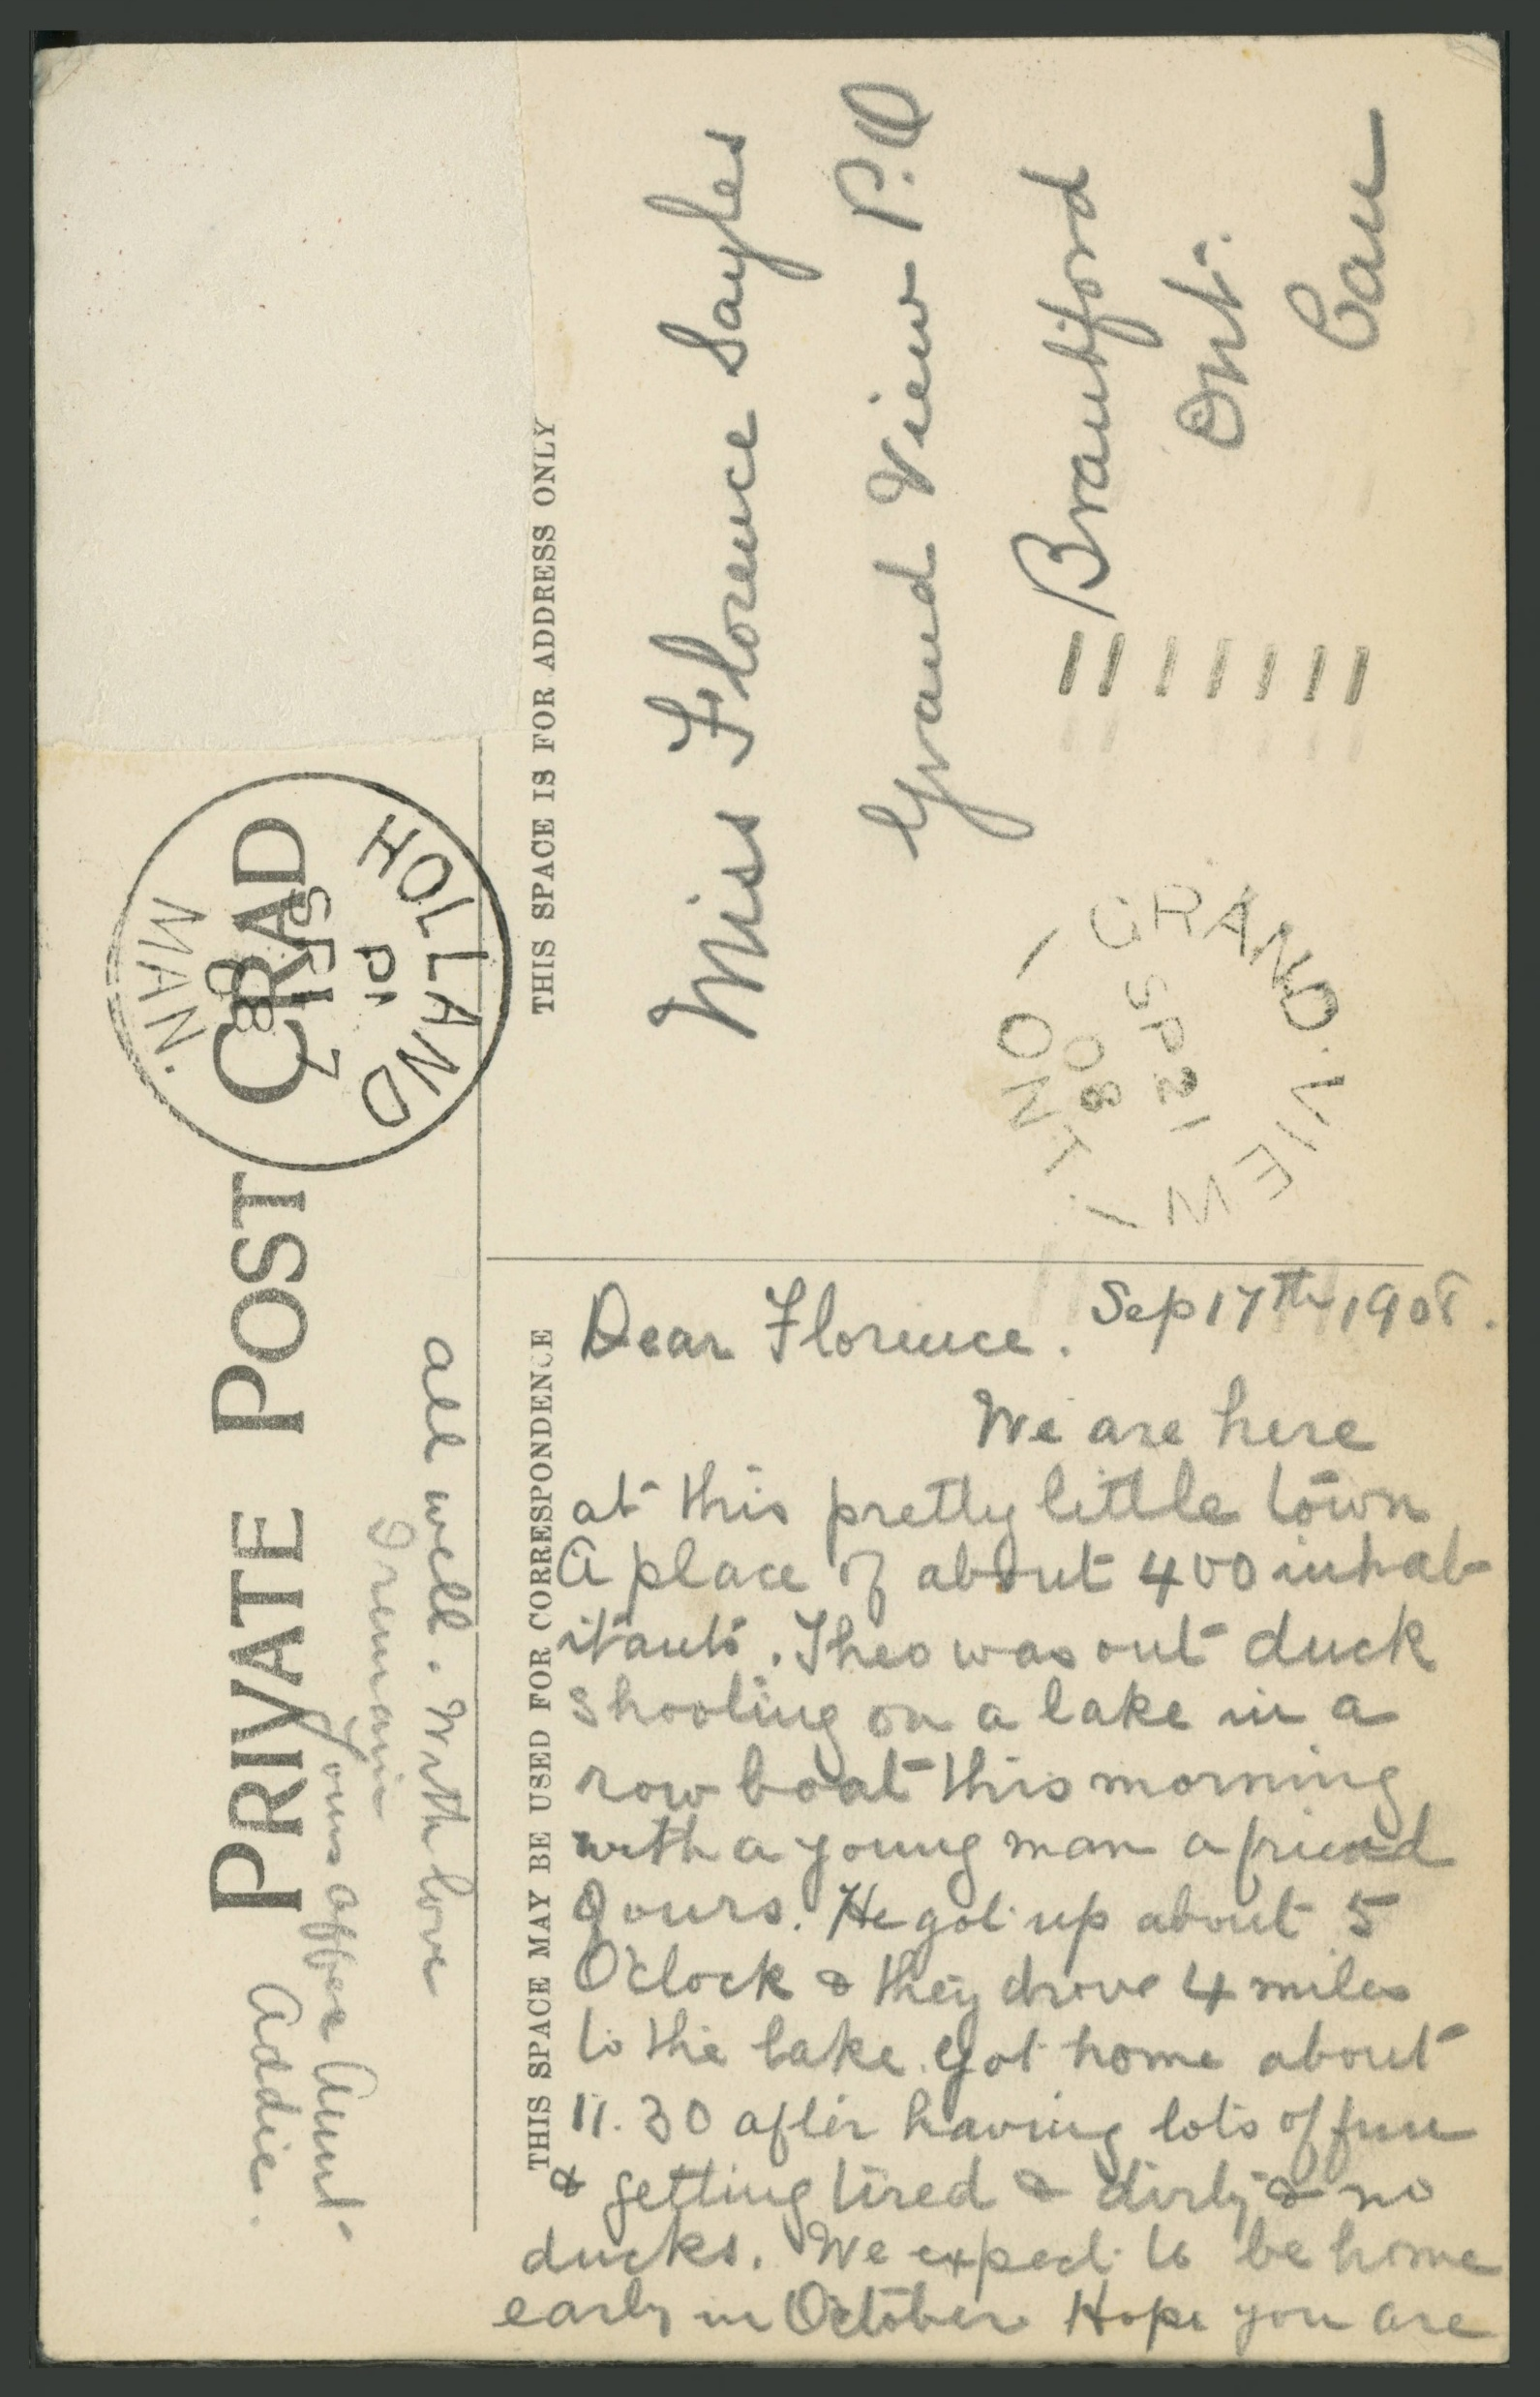 PRIVATE POST CARD
HOLLAND
PM
SP 17
08
MAN.
THIS SPACE IS FOR ADDRESS ONLY
Miss Florence Sayles
Grand View P.O
Brantford
Ont.
Can
GRAND VIEW
SP 21
08
ONT.
THIS SPACE MAY BE USED FOR CORRESPONDENCE
Dear Florence. Sep 17th 1908.
We are here
at this pretty little town
A place of about 400 inhab
itants. Theo was out duck
shooting on a lake in a
row boat this morning
with a young man a friend
yours. He got up about 5
O'clock & they drove 4 miles
to the lake. got home about
11.30 after having lots of fun
& getting tired & dirty & no
ducks. We expect to be home
early in October Hope you are
all well. With love
I remain
Yours affec Aunt
Addie.